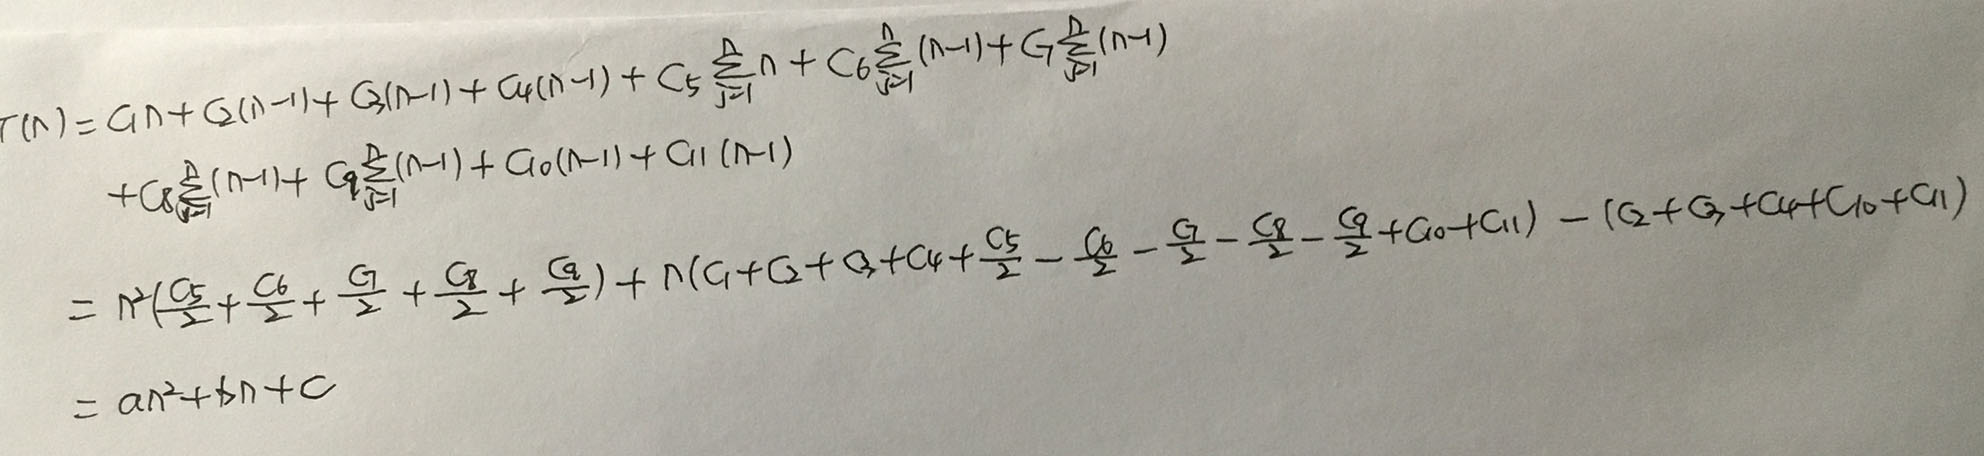 T(n) = C₁n + C₂(n-1) + C₃(n-1) + C₄(n-1) + C₅ ∑ⱼ₌₁ⁿ n + C₆ ∑ⱼ₌₁ⁿ (n-1) + C₇ ∑ⱼ₌₁ⁿ (n-1)
+ C₈ ∑ⱼ₌₁ⁿ (n-1) + C₉ ∑ⱼ₌₁ⁿ (n-1) + C₁₀(n-1) + C₁₁(n-1)
= n²(C₅/2 + C₆/2 + C₇/2 + C₈/2 + C₉/2) + n(C₁ + C₂ + C₃ + C₄ + C₅/2 - C₆/2 - C₇/2 - C₈/2 - C₉/2 + C₁₀ + C₁₁) - (C₂ + C₃ + C₄ + C₁₀ + C₁₁)
= an² + bn + c